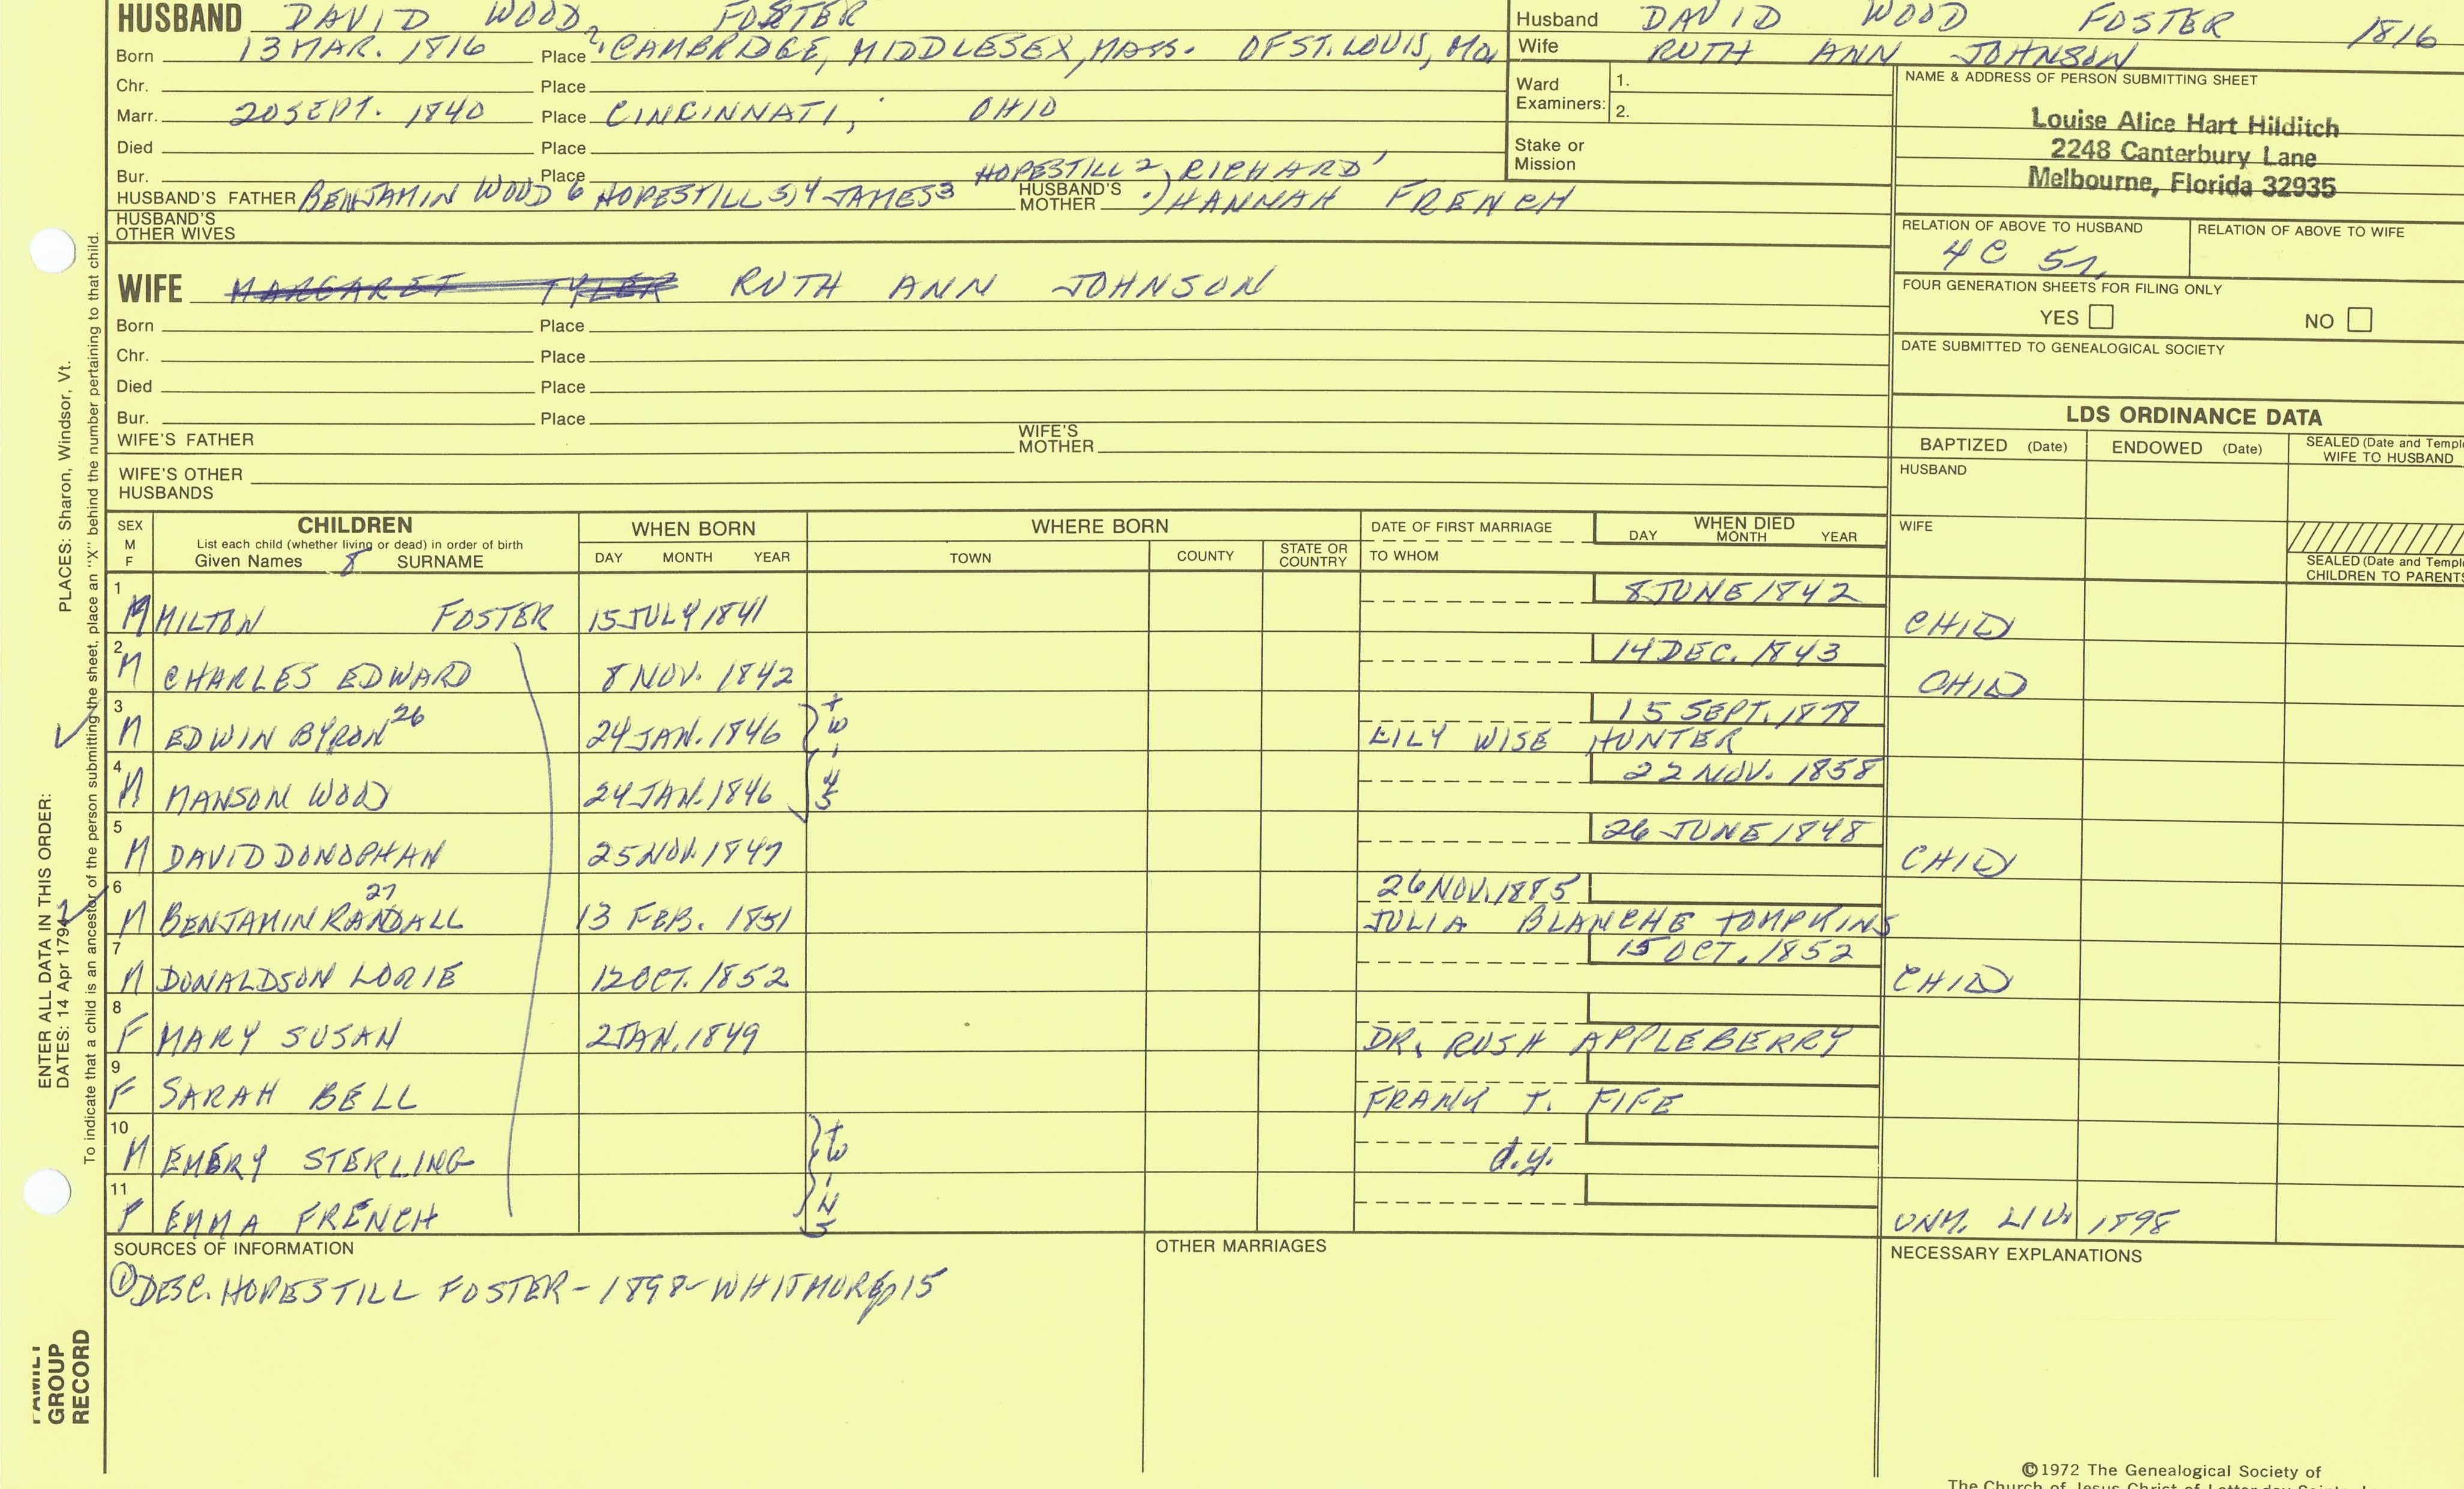 HUSBAND DAVID WOOD 7 FOSTER
Born 13 MAR. 1816 Place CAMBRIDGE, MIDDLESEX, MASS. OF ST. LOUIS, MO.
Chr. Place
Marr. 20 SEPT. 1840 Place CINCINNATI, OHIO
Died Place
Bur. Place
HOPESTILL 2, RICHARD 1
HUSBAND'S FATHER BENJAMIN WOOD 6 HOPESTILL 5,4 JAMES 3 HUSBAND'S MOTHER HANNAH FRENCH
HUSBAND'S OTHER WIVES
WIFE MARGARET TYLER RUTH ANN JOHNSON
Born Place
Chr. Place
Died Place
Bur. Place
WIFE'S FATHER WIFE'S MOTHER
WIFE'S OTHER HUSBANDS
Husband DAVID WOOD FOSTER 1816
Wife RUTH ANN JOHNSON
Ward Examiners: 1.
2.
Stake or Mission
NAME & ADDRESS OF PERSON SUBMITTING SHEET
Louise Alice Hart Hilditch
2248 Canterbury Lane
Melbourne, Florida 32935
RELATION OF ABOVE TO HUSBAND RELATION OF ABOVE TO WIFE
4C 5r
FOUR GENERATION SHEETS FOR FILING ONLY
YES NO
DATE SUBMITTED TO GENEALOGICAL SOCIETY
LDS ORDINANCE DATA
BAPTIZED (Date) ENDOWED (Date) SEALED (Date and Templ
WIFE TO HUSBAND
HUSBAND
WIFE
SEALED (Date and Templ
CHILDREN TO PARENTS
SEX M F CHILDREN WHEN BORN WHERE BORN DATE OF FIRST MARRIAGE WHEN DIED
List each child (whether living or dead) in order of birth
Given Names 8 SURNAME DAY MONTH YEAR TOWN COUNTY STATE OR COUNTRY TO WHOM DAY MONTH YEAR
1 M MILTON FOSTER 15 JULY 1841 8 JUNE 1842 CHILD
2 M CHARLES EDWARD 8 NOV. 1842 14 DEC. 1843 CHILD
3 M EDWIN BYRON 26 24 JAN. 1846 twins LILY WISE HUNTER 15 SEPT. 1878
4 M MANSON WOOD 24 JAN. 1846 22 NOV. 1858
5 M DAVID DONOPHAN 25 NOV. 1847 26 JUNE 1848 CHILD
6 M BENJAMIN RANDALL 27 13 FEB. 1851 26 NOV. 1885 JULIA BLANCHE TOMPKINS
7 M DONALDSON LORIE 12 OCT. 1852 15 OCT. 1852 CHILD
8 F MARY SUSAN 2 JAN. 1849 DR. RUSH APPLEBERRY
9 F SARAH BELL FRANK T. FIFE
10 M EMERY STERLING twins d.y.
11 F EMMA FRENCH UNM. LIV. 1898
SOURCES OF INFORMATION OTHER MARRIAGES NECESSARY EXPLANATIONS
① DESC. HOPESTILL FOSTER - 1898 - WHITMORE p 15
©1972 The Genealogical Society of
The Church of Jesus Christ of Latter-day Saints
PLACES: Sharon, Windsor, Vt.
ENTER ALL DATA IN THIS ORDER:
DATES: 14 Apr 1794
To indicate that a child is an ancestor of the person submitting the sheet, place an "X" behind the number pertaining to that child.
FAMILY
GROUP
RECORD